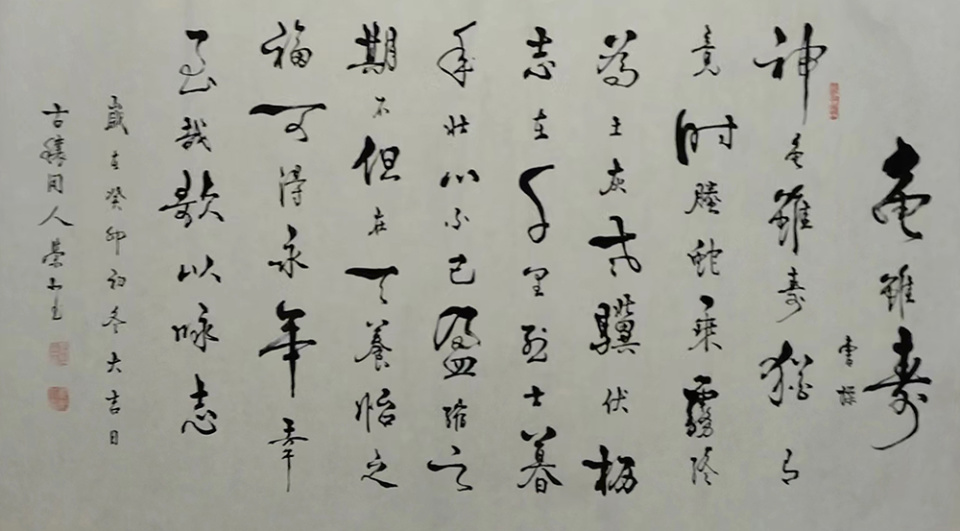 龟雖寿
曹操
神龟雖寿猶有
竟时騰蛇乘霧终
為土灰老驥伏枥
志在千里烈士暮
年壮心不已盈缩之
期不但在天養怡之
福可得永年幸
至哉歌以咏志
歲在癸卯初冬大吉日
古穰人